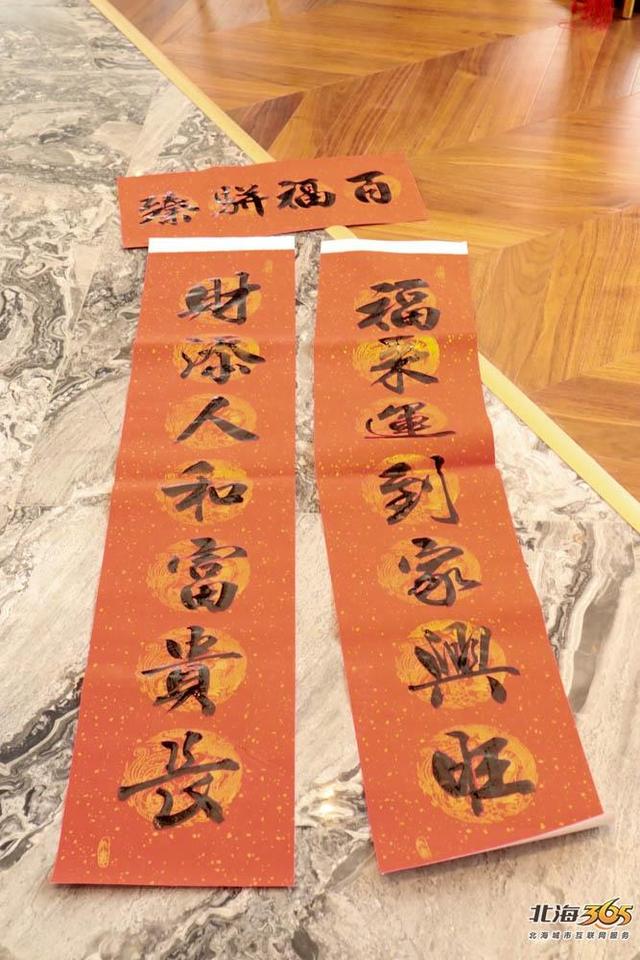 百福駢臻
福来運到家興旺
財添人和富貴長
北海365
北海城市互联网服务